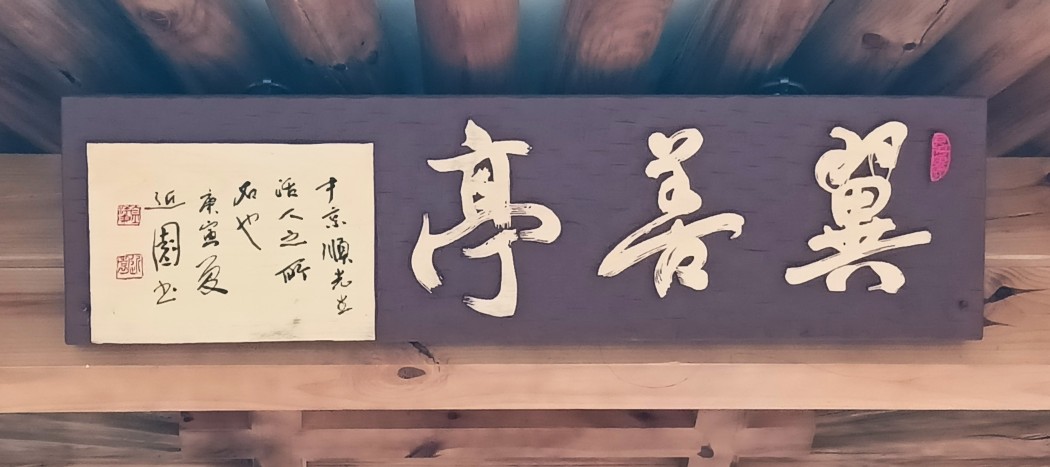 翼善亭
京順先生
活人之所
名也
庚寅夏
近園书